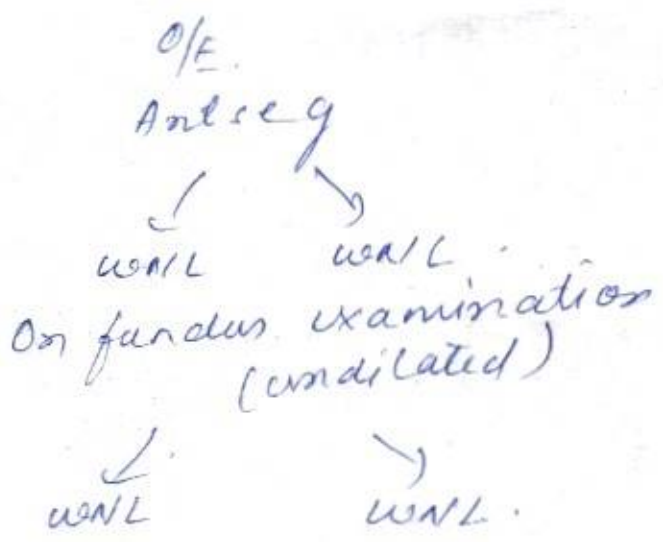 O/E.
Antseg
WNL WNL.
On fundus examination
(undilated)
WNL WNL.